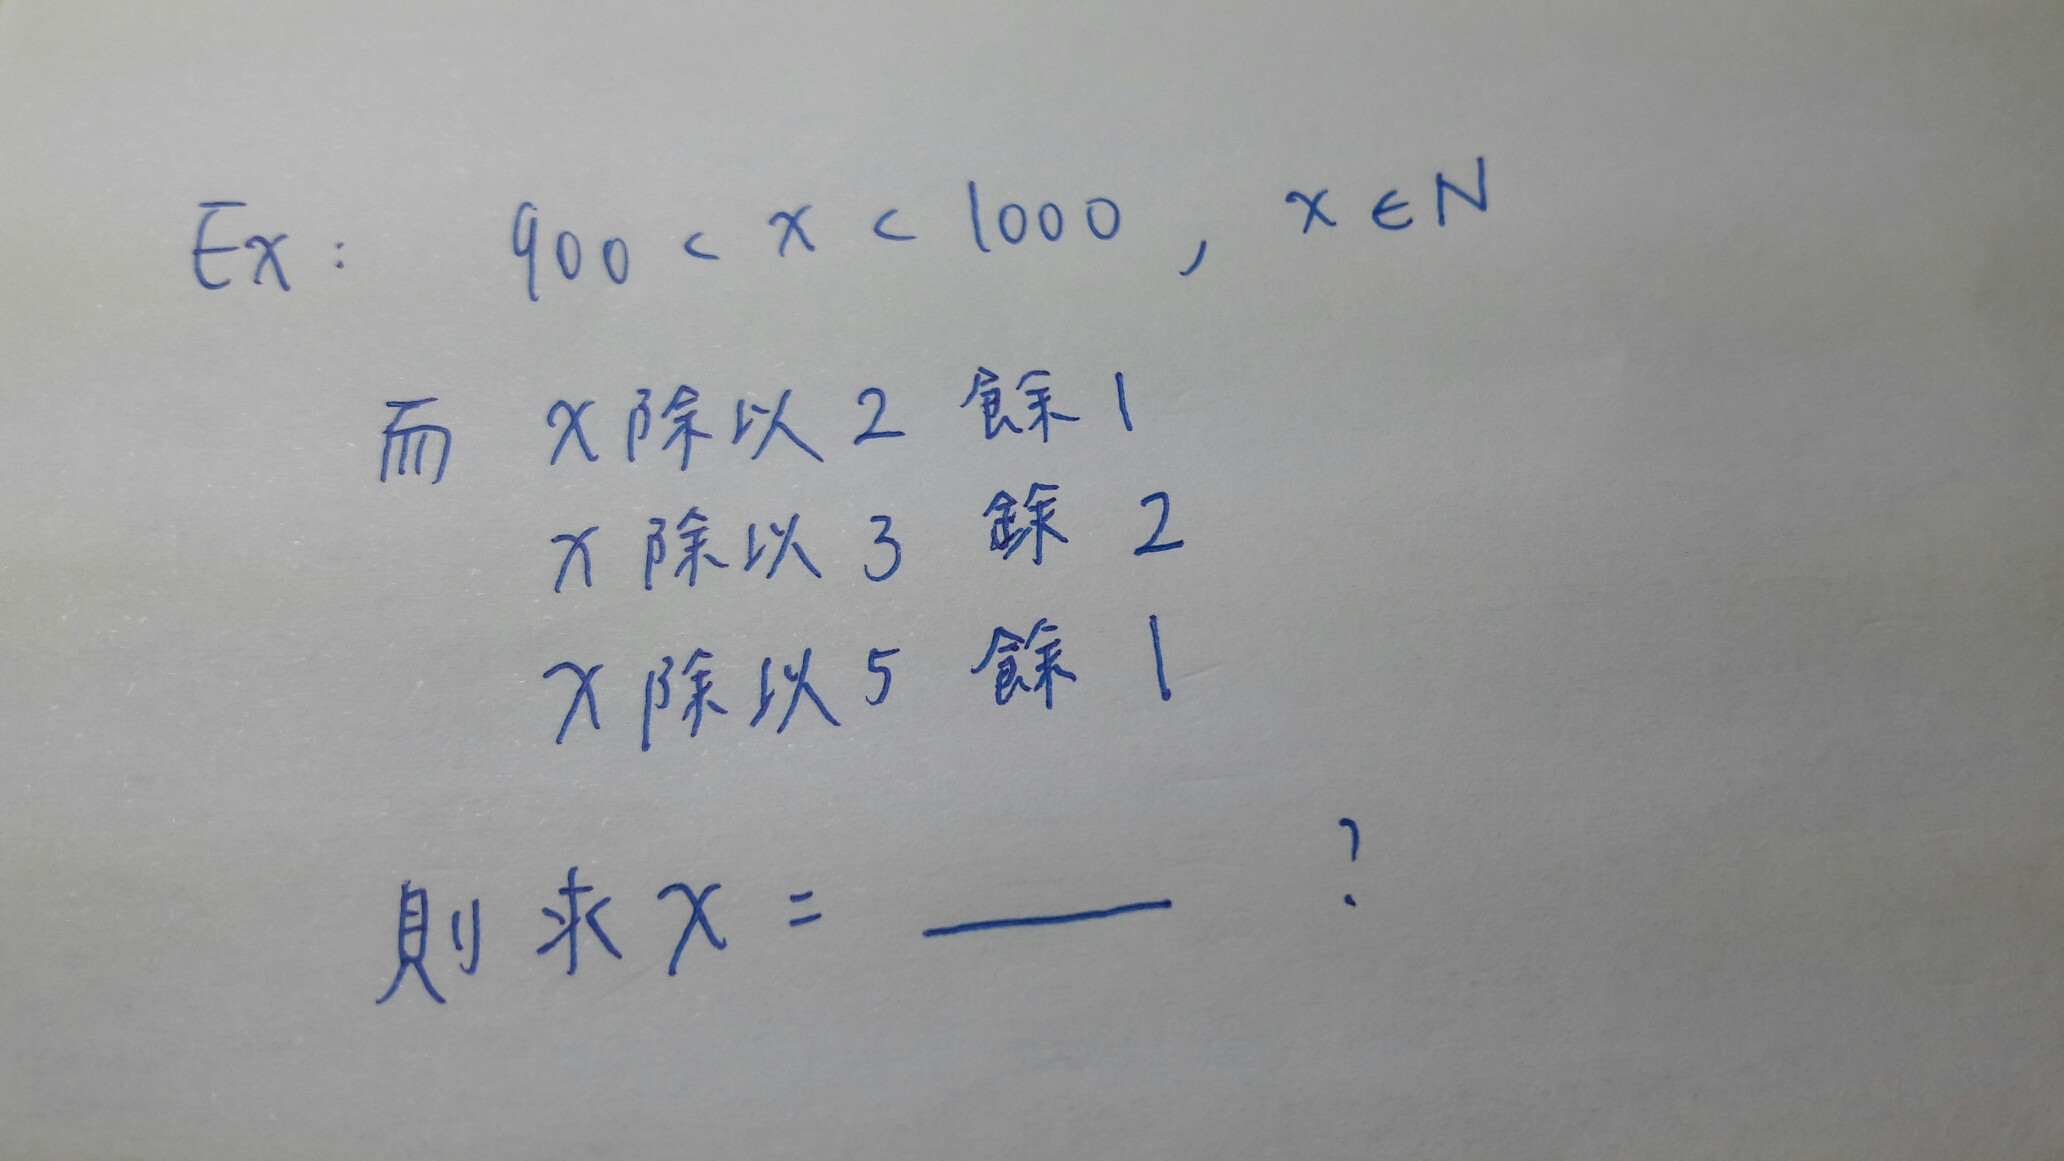 Ex: 900 < x < 1000, x∈N
而 x除以2 餘1
x除以3 餘2
x除以5 餘1
則求x = ____ ?